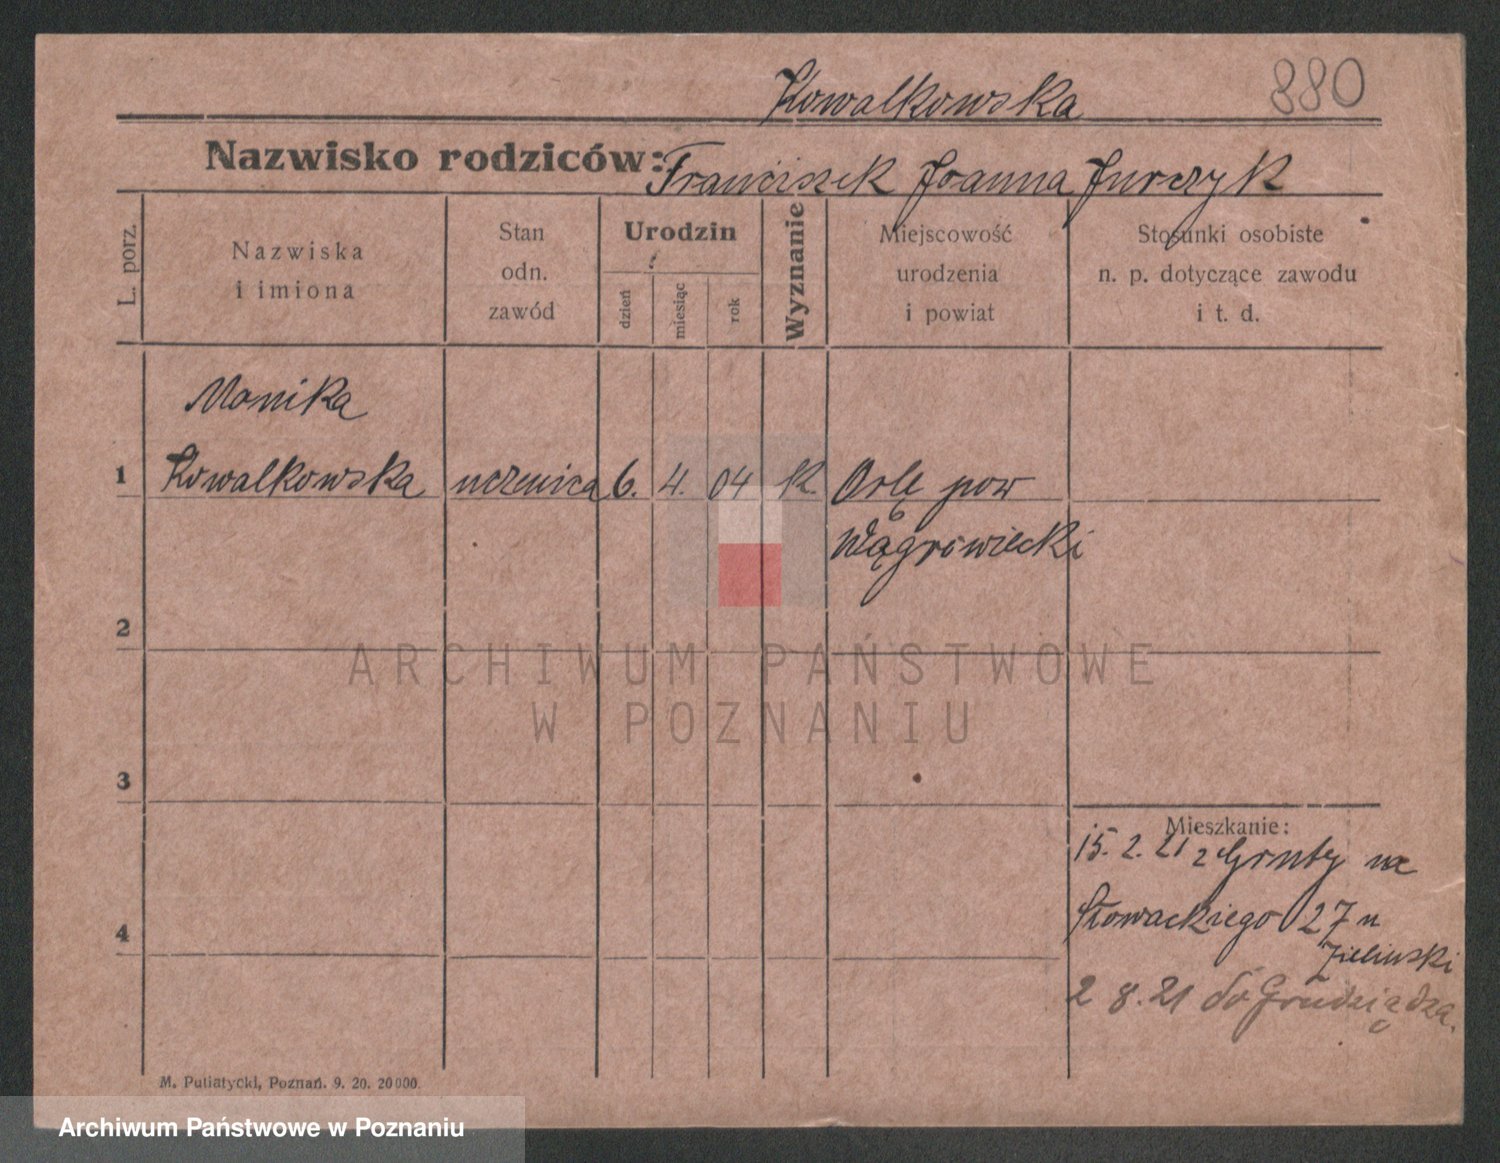 Kowalkowska 880
Nazwisko rodziców: Franciszek Joanna Jurczyk
L. porz.
Nazwiska
i imiona
Stan
odn.
zawód
Urodzin
dzień
miesiąc
rok
Wyznanie
Miejscowość
urodzenia
i powiat
Stosunki osobiste
n. p. dotyczące zawodu
i t. d.
Monika
1 Kowalkowska uczenica 6. 4. 04 k. Orlę pow
Wągrowiecki
2
3
4
Mieszkanie:
15. 2. 21 z Gruty na
Słowackiego 27 u
Zielinski
2 8. 21 do Grudziądza.
M. Putiatycki, Poznań. 9. 20. 20000.
ARCHIWUM PAŃSTWOWE
W POZNANIU
Archiwum Państwowe w Poznaniu